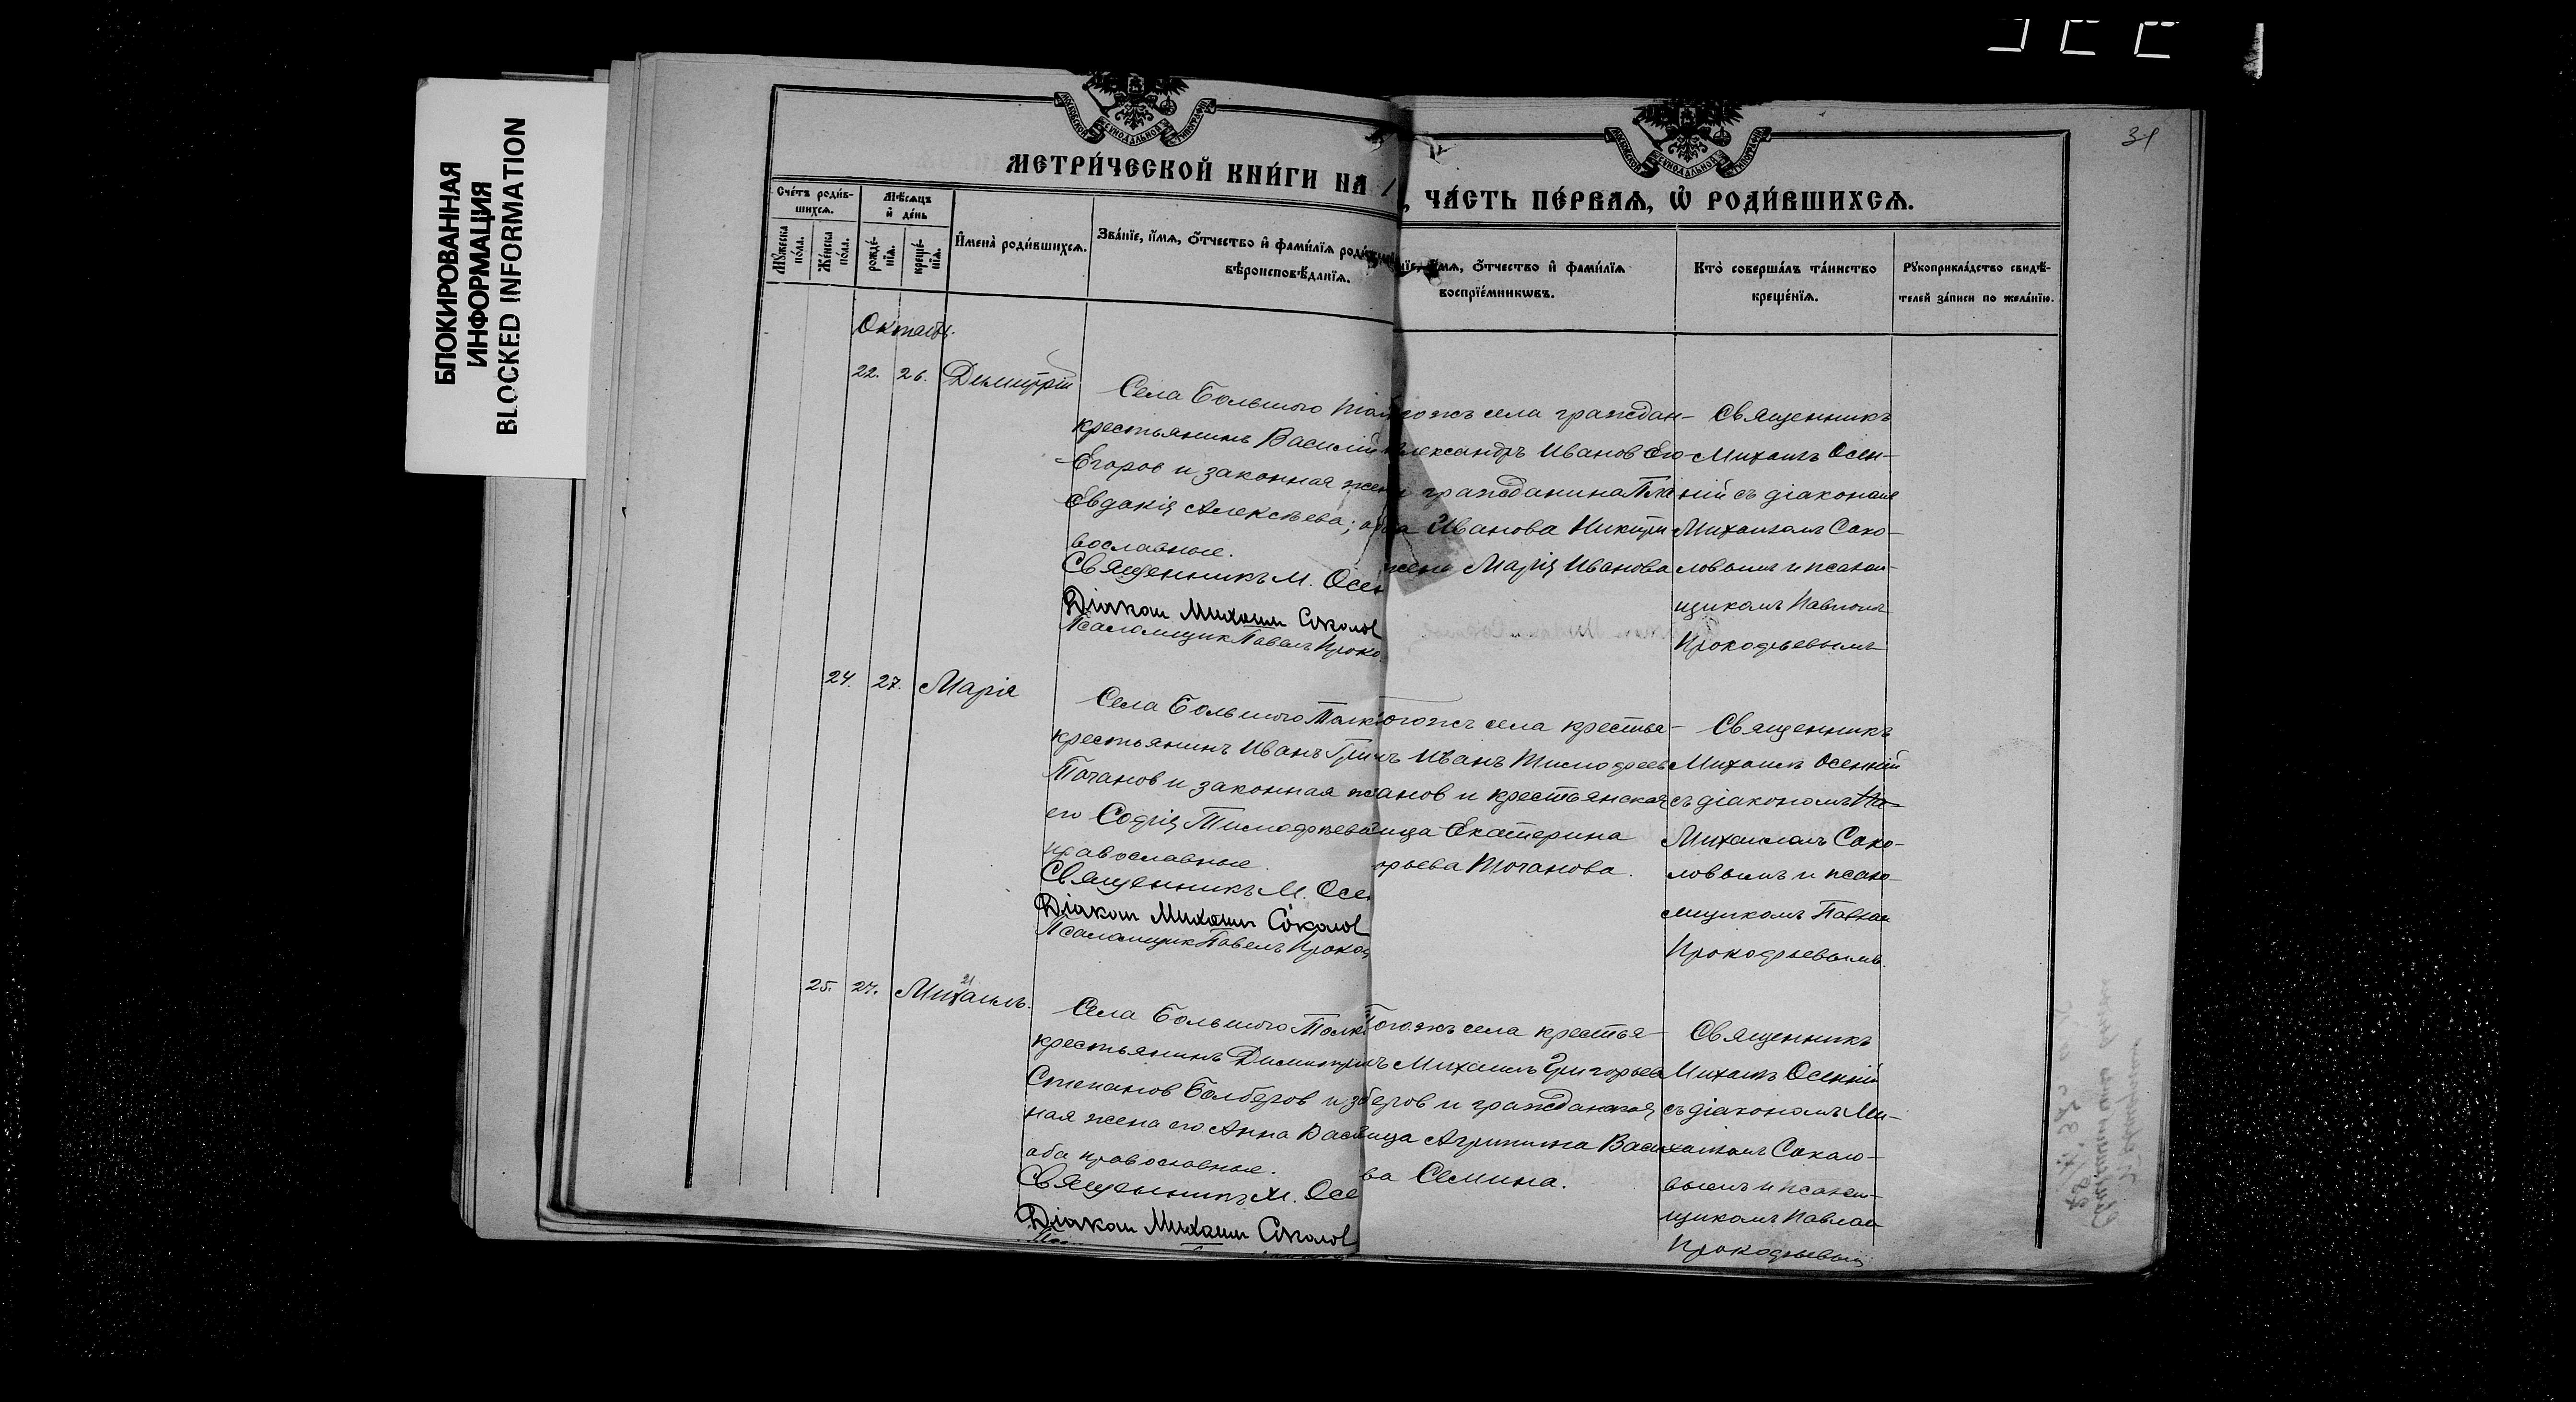 БЛОКИРОВАННАЯ
ИНФОРМАЦИЯ
BLOCKED INFORMATION
31
МОСКОВСКОЙ СѴНОДАЛЬНОЙ ТИПОГРАФІИ
МОСКОВСКОЙ СѴНОДАЛЬНОЙ ТИПОГРАФІИ
МЕТРИ́ЧЕСКОЙ КНИ́ГИ НА 1
, ЧА́СТЬ ПЕ́РВАѦ, Ѡ҆ РОДИ́ВШИХСѦ.
Сче́тъ роди́в-
шихсѧ.
Мѣ́сѧцъ
и҆ де́нь
Мꙋ́жеска
по́ла.
Же́нска
по́ла.
рожде́-
нїѧ.
креще́-
нїѧ.
И҆мена̀ роди́вшихсѧ.
Зва́нїе, и҆́мѧ, ѻ҆́тчество и҆ фами́лїѧ
вѣроисповѣ́данїѧ.
ѻ҆́тчество и҆ фами́лїѧ
воспрїе́мникѡвъ.
Кто̀ соверша́лъ та́инство
креще́нїѧ.
Рꙋкоприкла́дство свидѣ́-
телей за́писи по жела́нїю.
Октябр.
22. 26. Димитрій
Села Большого
крестьянинъ Василій
Егоров и законная жен
Евдакія Алексѣева; оба
вославные.
Священникъ М. Осен
Діакон Михаил Соколов
Псаломщик Павелъ Проко
гожъ села граждан-
лександръ Иванов Его-
гражданина
Иванова Никит
жена Марія Иванова
Священникъ
Михаилъ Осен-
ній съ діаконом
Михаиломъ Соко-
ловымъ и псалом-
щикомъ Павломъ
Прокофьевымъ
24. 27. Марія
Села Большого Толк
крестьянинъ Иванъ Григ
Точанов и законная ж
его Софія Тимофеева
православные.
Священникъ М. Осе
Діакон Михаил Соколов
Псаломщик Павелъ Прокоф
тогожъ села крестья-
нъ Иванъ Тимофеев
чанов и крестьянская
ица Екатерина
орьева Точанова.
Священникъ
Михаилъ Осенній
съ діакономъ
Михаиломъ Соко-
ловымъ и псало-
мщикомъ Павлом
Прокофьевымъ.
25. 27. Михаилъ.
21
Села Большого Толк
крестьянинъ Димитрі
Степанов Балберов и з
ная жена его Анна Вас
оба православные.
Священникъ М. Осе
Діакон Михаил Соколов
Тогожъ села крестья-
нъ Михаилъ Григорьев
беров и гражданская
вица Агрипина Васи
ва Семина.
Священникъ
Михаилъ Осенній
съ діакономъ Ми-
хаиломъ Соколо-
вымъ и псалом-
щикомъ Павлом
Прокофьевым